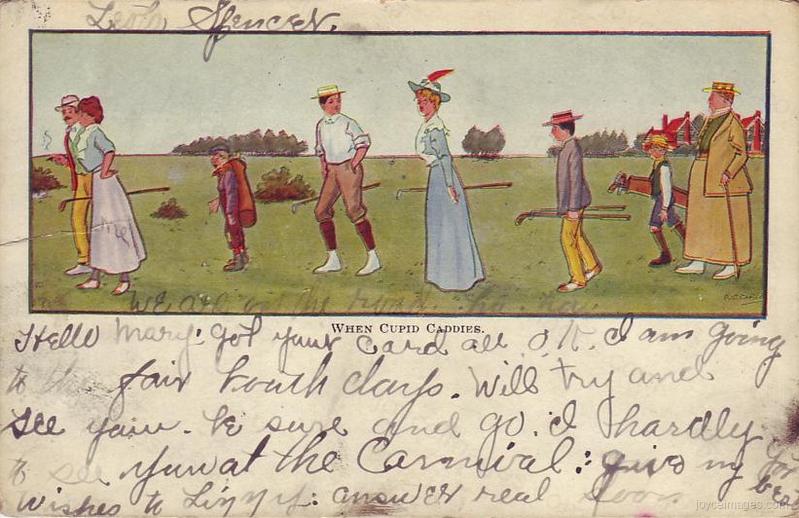 Leola Spencer.
We are on the
WHEN CUPID CADDIES.
Hello Mary: got your card all O.K. I am going
to the fair both days. Will try and
see yaw. be sure and go. I hardly got
to see yaw at the Carnival: give my best
wishes to Lizzy: answer real soon
joyceimages.com